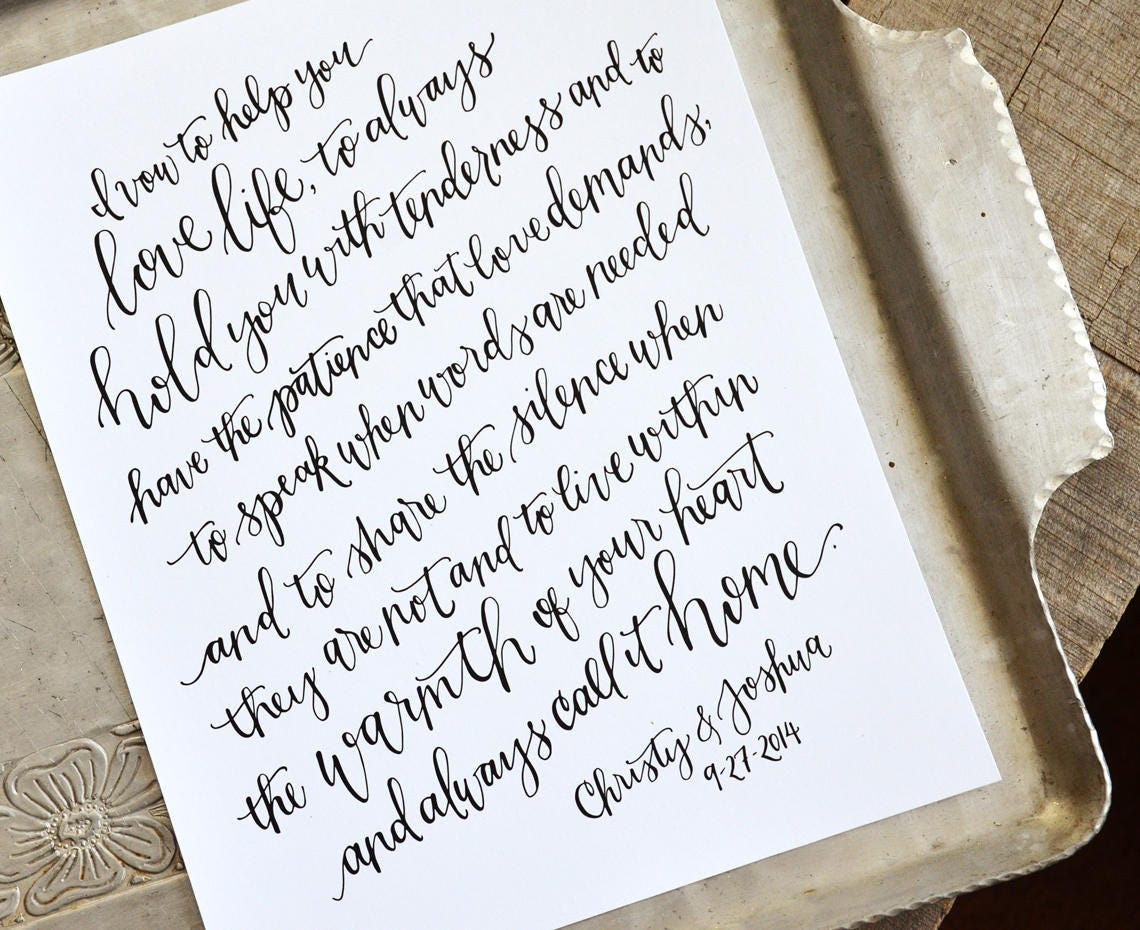 I vow to help you
love life, to always
hold you with tenderness and to
have the patience that love demands,
to speak when words are needed
and to share the silence when
they are not and to live within
the warmth of your heart
and always call it home.
Christy & Joshua
9-27-2014